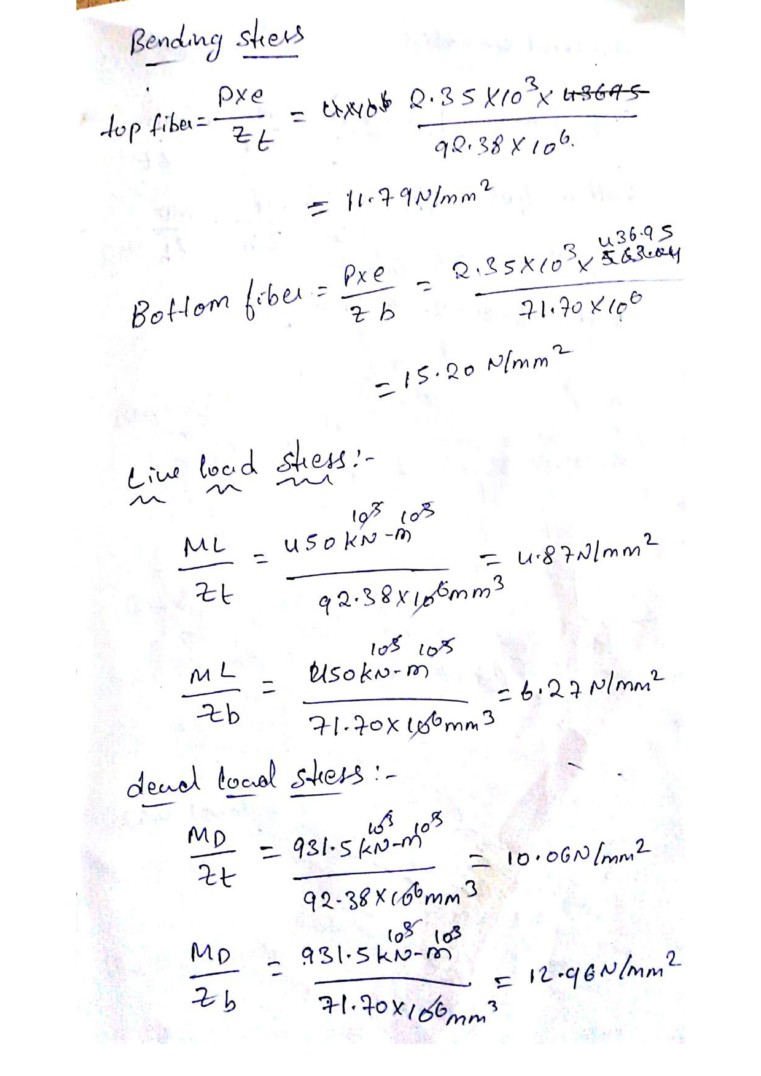 Bending stress
top fiber = Pxe / Zt = 2.35 x10³ x 43695 / 92.38 x 10⁶.
= 11.79 N/mm²
Bottom fiber = Pxe / Zb = 2.35x10³ x 436.95 / 71.70 x10⁶
= 15.20 N/mm²
Live load stress:-
ML / Zt = 450 kN-m 10³ 10³ / 92.38 x 10⁶ mm³ = 4.87 N/mm²
ML / Zb = 450 kN-m 10³ 10³ / 71.70 x 10⁶ mm³ = 6.27 N/mm²
dead load stress:-
MD / Zt = 931.5 kN-m 10³ 10³ / 92.38 x 10⁶ mm³ = 10.06 N/mm²
MD / Zb = 931.5 kN-m 10³ 10³ / 71.70 x 10⁶ mm³ = 12.96 N/mm²